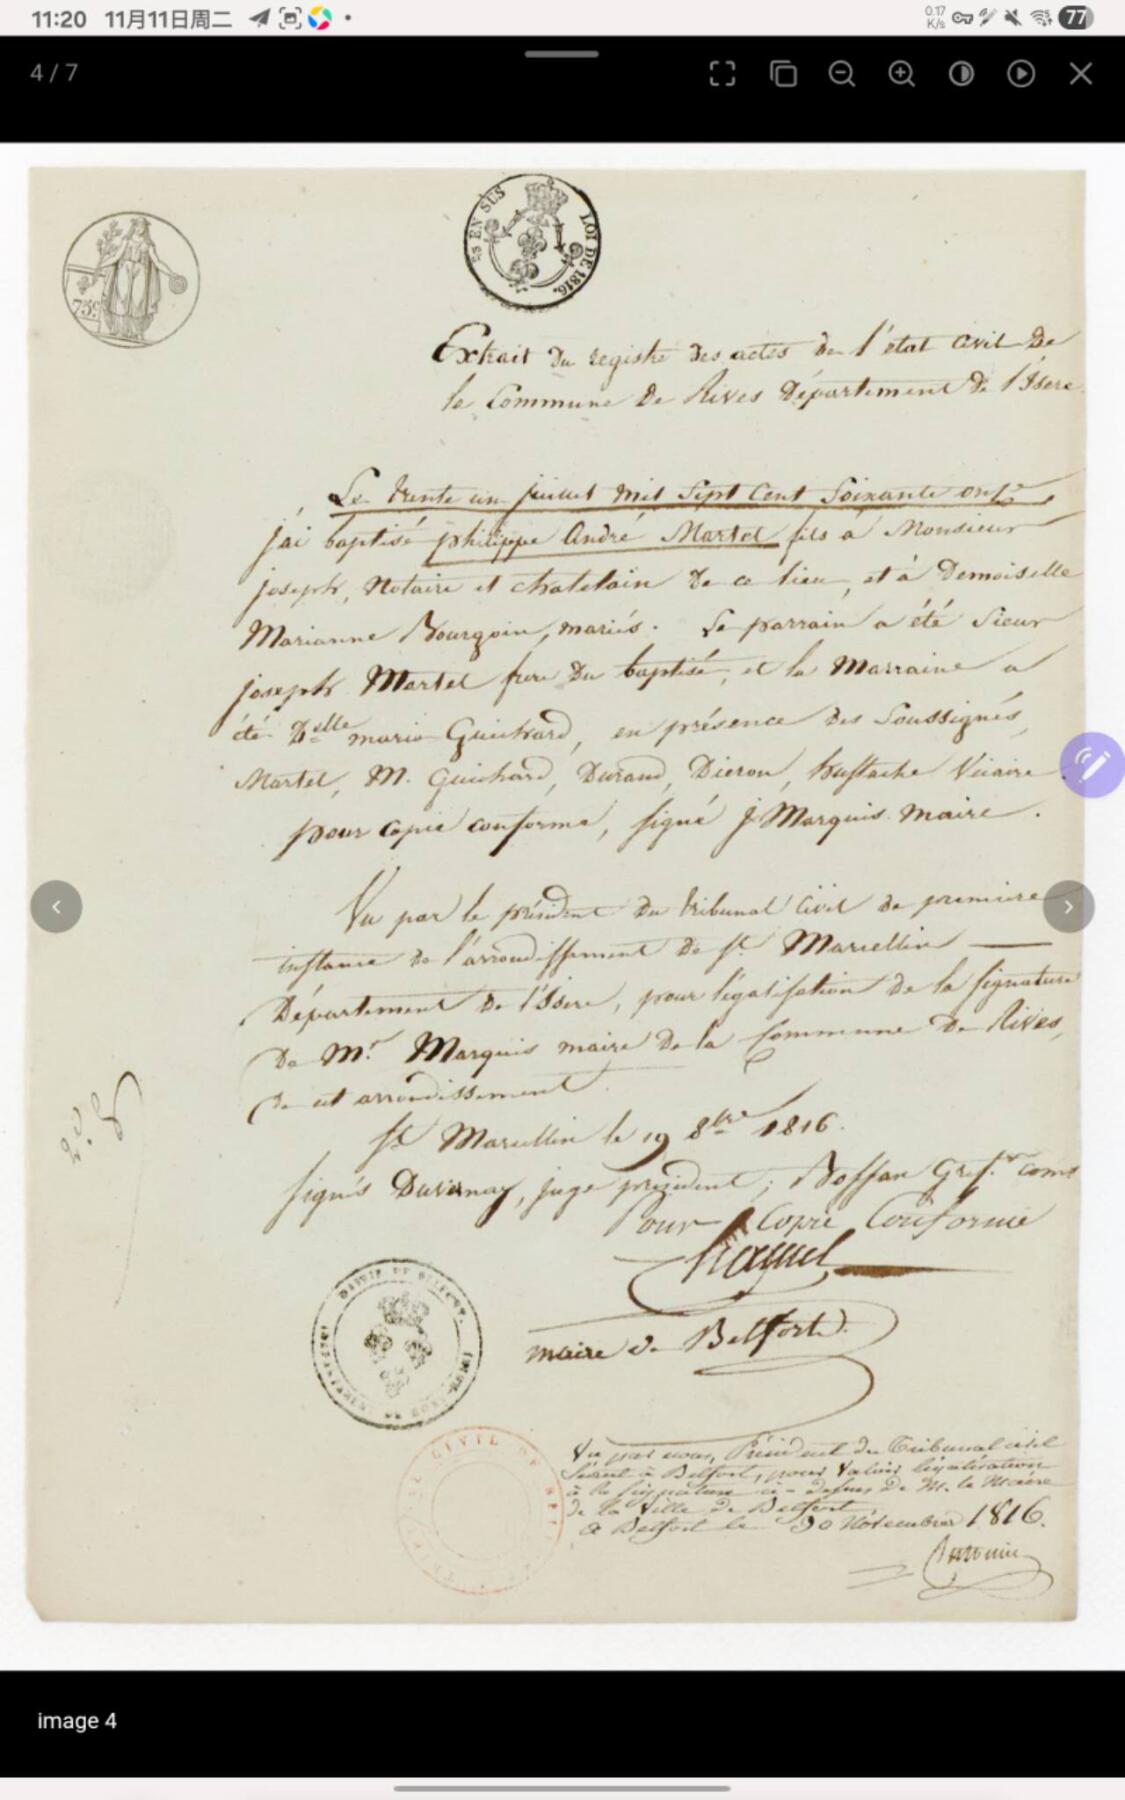 11:20 11月11日周二
0.17 K/s
77
4 / 7
75c
es EN SUS LOI DE 1816.
Extrait du registre des actes de l'état civil de
la Commune de Rives Département de l'Isere
Le trente un juillet mil sept cent soixante onze
j'ai baptisé philippe André Martel fils à Monsieur
joseph, Notaire et chatelain de ce lieu, et à Demoiselle
Marianne Bourgoin, mariés. Le parrain a été Sieur
joseph Martel frere du baptisé, et la Marraine a
été Delle marie Guichard, en présence des soussignés,
Martel, M. Guichard, Durand, Dieron, Eustache Vicaire.
pour copie conforme, signé J. Marquis maire.
Vu par le président du tribunal civil de premiere
instance de l'arrondissement de St. Marcellin
Département de l'Isere, pour légalisation de la signature
de Mr. Marquis maire de la Commune de Rives,
de cet arrondissement.
St. Marcellin le 19 8bre 1816.
signés Duvernay, juge president; Boffan Greff.er coms
Pour Copie Conforme
maire de Belfort.
CIVIL DE
Vu par nous, Président du Tribunal civil
séant à Belfort, pour valoir légalisation
à la signature ci-dessus de M. le Maire
de la Ville de Belfort.
à Belfort le 30 Novembre 1816.
image 4